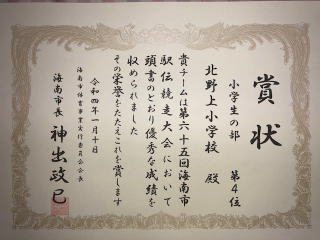 賞状
小学生の部　第4位
北野上小学校　殿
貴チームは第六十五回海南市
駅伝競走大会において
頭書のとおり優秀な成績を
収められました
その栄誉をたたえこれを賞します
令和四年一月十日
海南市体育事業実行委員会会長
海南市長　神出政巳